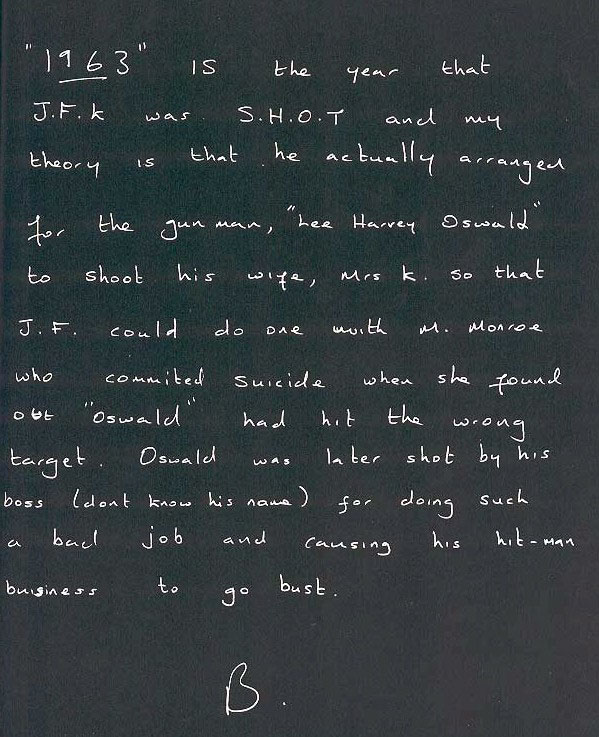 "1963" IS the year that
J.F.K was S.H.O.T and my
theory is that he actually arranged
for the gun man, "Lee Harvey Oswald"
to shoot his wife, Mrs K. so that
J.F. could do one with M. Monroe
who commited suicide when she found
out "Oswald" had hit the wrong
target. Oswald was later shot by his
boss (dont know his name) for doing such
a bad job and causing his hit-man
buisiness to go bust.
B.